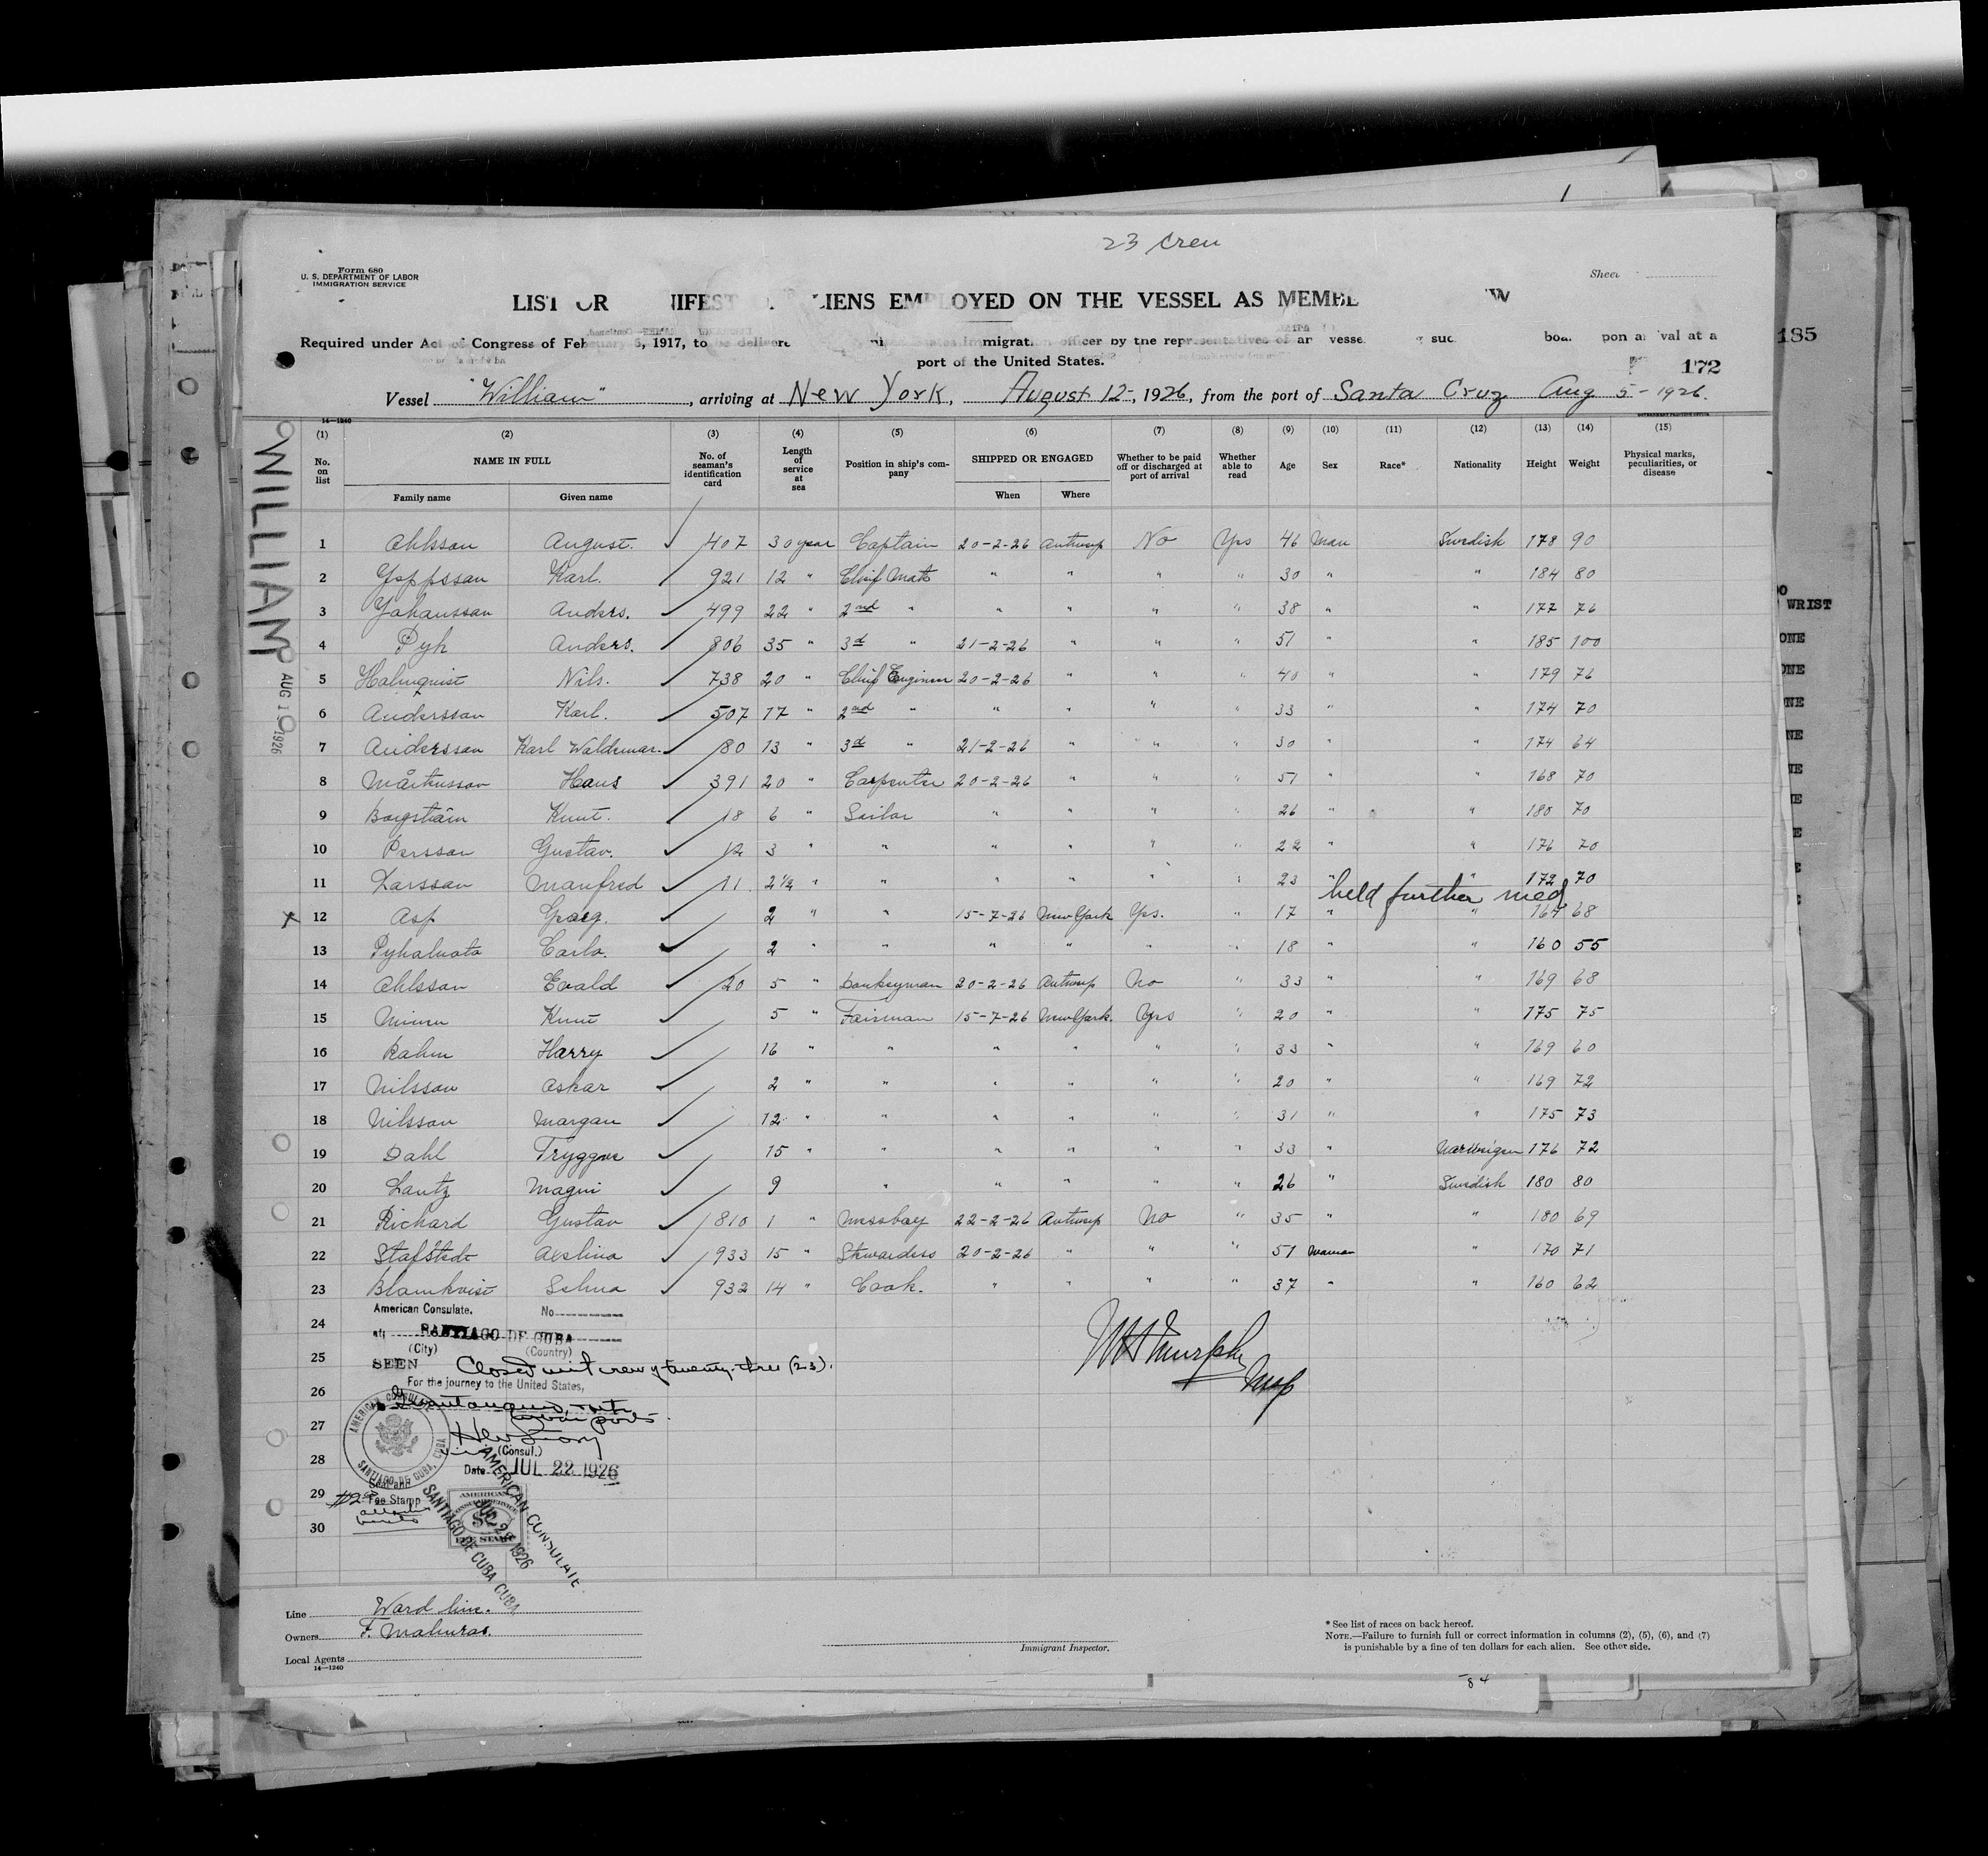 23 Crew
Form 680
U. S. DEPARTMENT OF LABOR
IMMIGRATION SERVICE
Sheet
LIST OR MANIFEST OF ALIENS EMPLOYED ON THE VESSEL AS MEMBERS OF CREW
Required under Act of Congress of February 5, 1917, to be delivered to the United States immigration officer by the representatives of any vessel having such aliens on board upon arrival at a
port of the United States.
172
185
Vessel "William", arriving at New York, August 12, 1926, from the port of Santa Cruz Aug 5-1926.
14—1240
(1) (2) (3) (4) (5) (6) (7) (8) (9) (10) (11) (12) (13) (14) (15)
No. on list NAME IN FULL Family name Given name No. of seaman's identification card Length of service at sea Position in ship's company SHIPPED OR ENGAGED When Where Whether to be paid off or discharged at port of arrival Whether able to read Age Sex Race* Nationality Height Weight Physical marks, peculiarities, or disease
WILLIAM
AUG 1 1926
1 Ohlsson August. 407 30 year Captain 20-2-26 Antwerp No Yes 46 Man Swedish 178 90
2 Yeppsson Karl. 921 12 " Chief Mate " " " " 30 " " 184 80
3 Yohansson Anders. 499 22 " 2nd " " " " " 38 " " 177 76
4 Pyk Anders. 806 35 " 3d " 21-2-26 " " " 51 " " 185 100
5 Holmquist Nils. 738 20 " Chief Engineer 20-2-26 " " " 40 " " 179 76
6 Andersson Karl. 507 17 " 2nd " " " " " 33 " " 174 70
7 Andersson Karl Waldemar. 80 13 " 3d " 21-2-26 " " " 30 " " 174 64
8 Mårtensson Hans 391 20 " Carpenter 20-2-26 " " " 51 " " 168 70
9 Knut. 18 6 " Sailor " " " " 26 " " 180 70
10 Persson Gustav. 12 3 " " " " " " 22 " " 176 70
11 Larsson Manfred 11 2½ " " " " " " 23 " " 172 70
held further med
x 12 Asp Georg. 2 " " 15-7-26 New York Yes. " 17 " " 164 68
13 Pyhaluoto Carlo. 2 " " " " " " 18 " " 160 55
14 Ohlsson Evald 20 5 " Donkeyman 20-2-26 Antwerp No " 33 " " 169 68
15 Knut 5 " Fairman 15-7-26 New York. Yes " 20 " " 175 75
16 Rahm Harry 16 " " " " " " 33 " " 169 60
17 Nilsson Oskar 2 " " " " " " 20 " " 169 72
18 Nilsson Morgan 12 " " " " " " 31 " " 175 73
19 Dahl Tryggve 15 " " " " " " 33 " Norweigen 176 72
20 Lantz Magni 9 " " " " " 26 " Swedish 180 80
21 Richard Gustav 810 1 " Messboy 22-2-26 Antwerp No " 35 " " 180 69
22 Stafstedt Avelina 933 15 " Stewardess 20-2-26 " " " 51 Woman " 170 71
23 Blomkvist Selma 932 14 " Cook. " " " " 37 " " 160 62
24
25
26
27
28
29
30
American Consulate,
No
at SANTIAGO DE CUBA
(City) (Country)
SEEN Closed with crew of twenty-three (23).
For the journey to the United States,
Guantanamo
Cuban ports.
(Consul.)
Date JUL 22 1926
AMERICAN CONSULATE
SANTIAGO DE CUBA, CUBA
Seal and
Fee Stamp
AMERICAN CONSULAR SERVICE
$2
FEE STAMP
AMERICAN CONSULATE
JUL 22 1926
SANTIAGO DE CUBA CUBA
W H Murphy
Insp
Line Ward line.
Owners
Local Agents
14—1240
Immigrant Inspector.
* See list of races on back hereof.
NOTE.—Failure to furnish full or correct information in columns (2), (5), (6), and (7)
is punishable by a fine of ten dollars for each alien. See other side.
WRIST
84